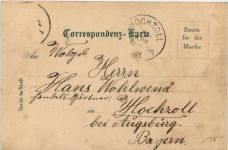 HOCHZOLL
Correspondenz-Karte.
Raum
für die
Marke
An
Herrn
Hans Wohlwend
in Hochzoll
bei Augsburg.
Bayern